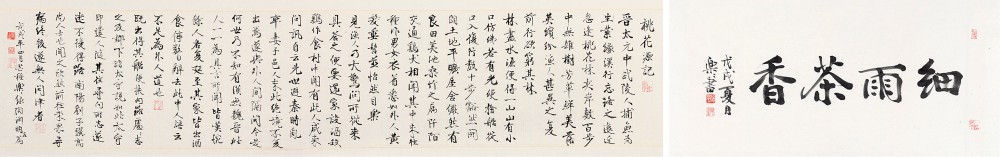 細雨茶香
戊戌夏日
樂書
桃花源記
晉太元中武陵人捕魚為
業緣溪行忘路之遠近
忽逢桃花林夾岸數百步
中無雜樹芳草鮮美落
英繽紛漁人甚異之復
前行欲窮其林
林盡水源便得一山山有小
口彷彿若有光便捨船從
口入復行數十步豁然開
朗土地平曠屋舍儼然有
良田美池桑竹之屬阡陌
交通雞犬相聞其中往來種
作男女衣著悉如外人黃
髮垂髫並怡然自樂
見漁人乃大驚問所從來
具答之便要還家設酒殺
雞作食村中聞有此人咸來
問訊自云先世避秦時亂
率妻子邑人來此絕境不復
出焉遂與外人間隔問今是
何世乃不知有漢無論魏晉此
人一一為具言所聞皆歎惋
餘人各復延至其家皆出酒
食停數日辭去此中人語云
不足為外人道也
既出得其船便扶向路處處志
之及郡下詣太守說如此太守
即遣人隨其往尋向所志遂
迷不復得路南陽劉子驥高
尚人士也聞之欣然規往未果尋
病終後遂無人問津者
戊戌年四月 樂錄陶淵明